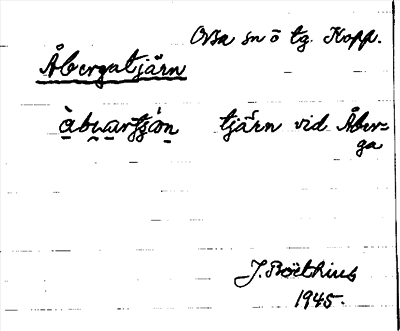 Orsa sn ö tg. Kopp.
Åbergatjärn
tjärn vid Åber=
ga
J. Boëthius
1945.